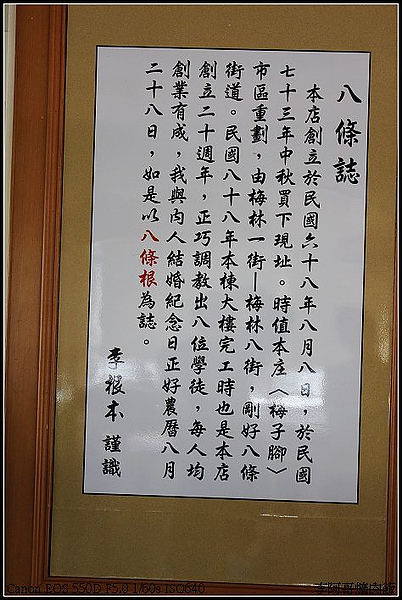 八條誌
本店創立於民國六十八年八月八日，於民國
七十三年中秋買下現址。時值本庄〈梅子腳〉
市區重劃，由梅林一街—梅林八街，剛好八條
街道。民國八十八年本棟大樓完工時也是本店
創立二十週年，正巧調教出八位學徒，每人均
創業有成，我與內人結婚紀念日正好農曆八月
二十八日，如是以八條根為誌。
李根本 謹識
Canon EOS 550D F5.0 1/60s ISO640